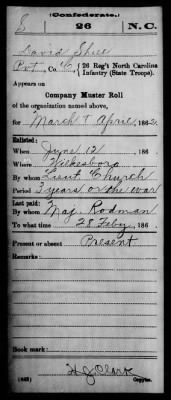 (Confederate.)
S 26 N.C.
David Shell
Pvt, Co. C, 26 Reg't North Carolina
Infantry (State Troops).
Appears on
Company Muster Roll
of the organization named above,
for March & April, 1862.
Enlisted:
When June 12, 186
Where Wilkesboro
By whom Lieut. Church
Period 3 years or the war
Last paid:
By whom Maj. Rodman
To what time 28 Feby, 186
Present or absent Present
Remarks:
Book mark:
H J Clark
(642) Copyist.